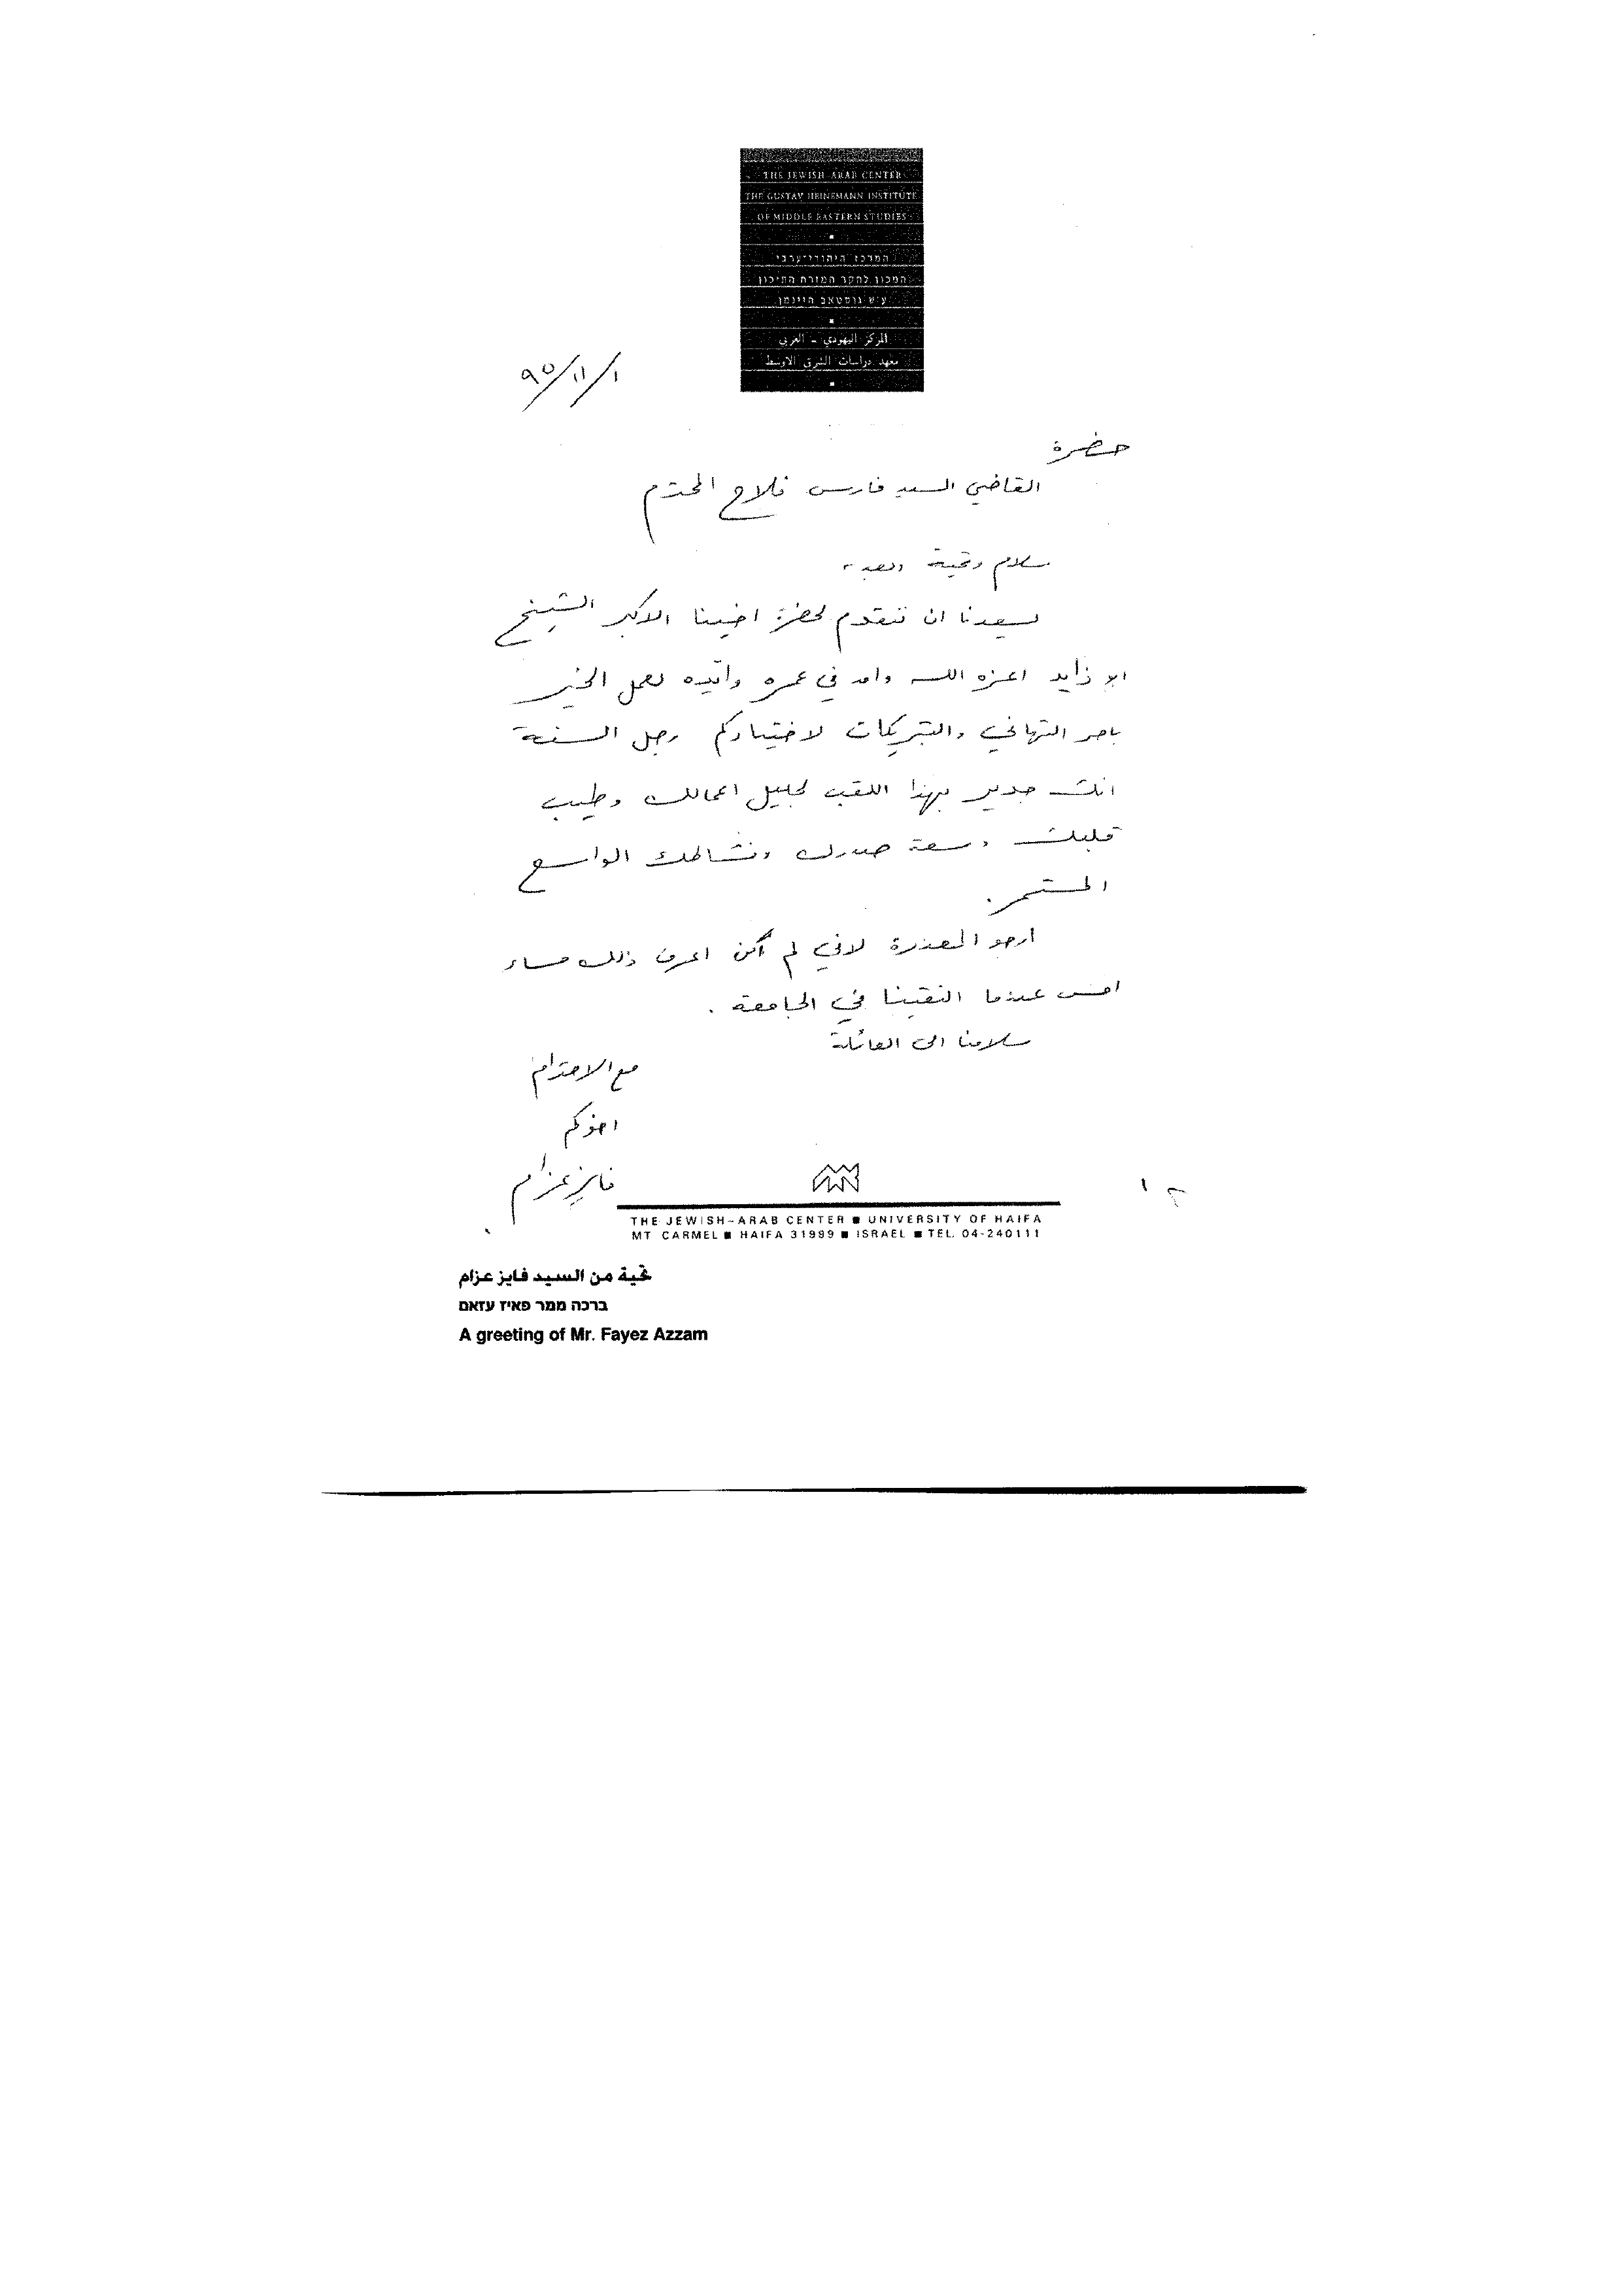 THE JEWISH-ARAB CENTER
THE GUSTAV HEINEMANN INSTITUTE
OF MIDDLE EASTERN STUDIES
המרכז היהודי־ערבי
המכון לחקר המזרח התיכון
ע״ש גוסטאב היינמן
المركز اليهودي - العربي
معهد دراسات الشرق الاوسط
٩٥/١١/١
حضرة
القاضي السيد فارس فلاح المحترم
سلام وتحية وبعد،
يسعدنا ان نتقدم لحضرة اخينا الاكبر الشيخ
ابو زايد اعزه الله وامد في عمره وايّده لعمل الخير
باحر التهاني والتبريكات لاختياركم رجل السنة
انك جدير بهذا اللقب لجليل اعمالك وطيب
قلبك وسعة صدرك ونشاطك الواسع
المستمر.
ارجو المعذرة لاني لم أكن اعرف ذلك مساء
امس عندما التقينا في الجامعة.
سلامنا الى العائلة
مع الاحترام
اخوكم
فايز عزام
THE JEWISH-ARAB CENTER ■ UNIVERSITY OF HAIFA
MT. CARMEL ■ HAIFA 31999 ■ ISRAEL ■ TEL. 04-240111
تحية من السيد فايز عزام
ברכה ממר פאיז עזאם
A greeting of Mr. Fayez Azzam